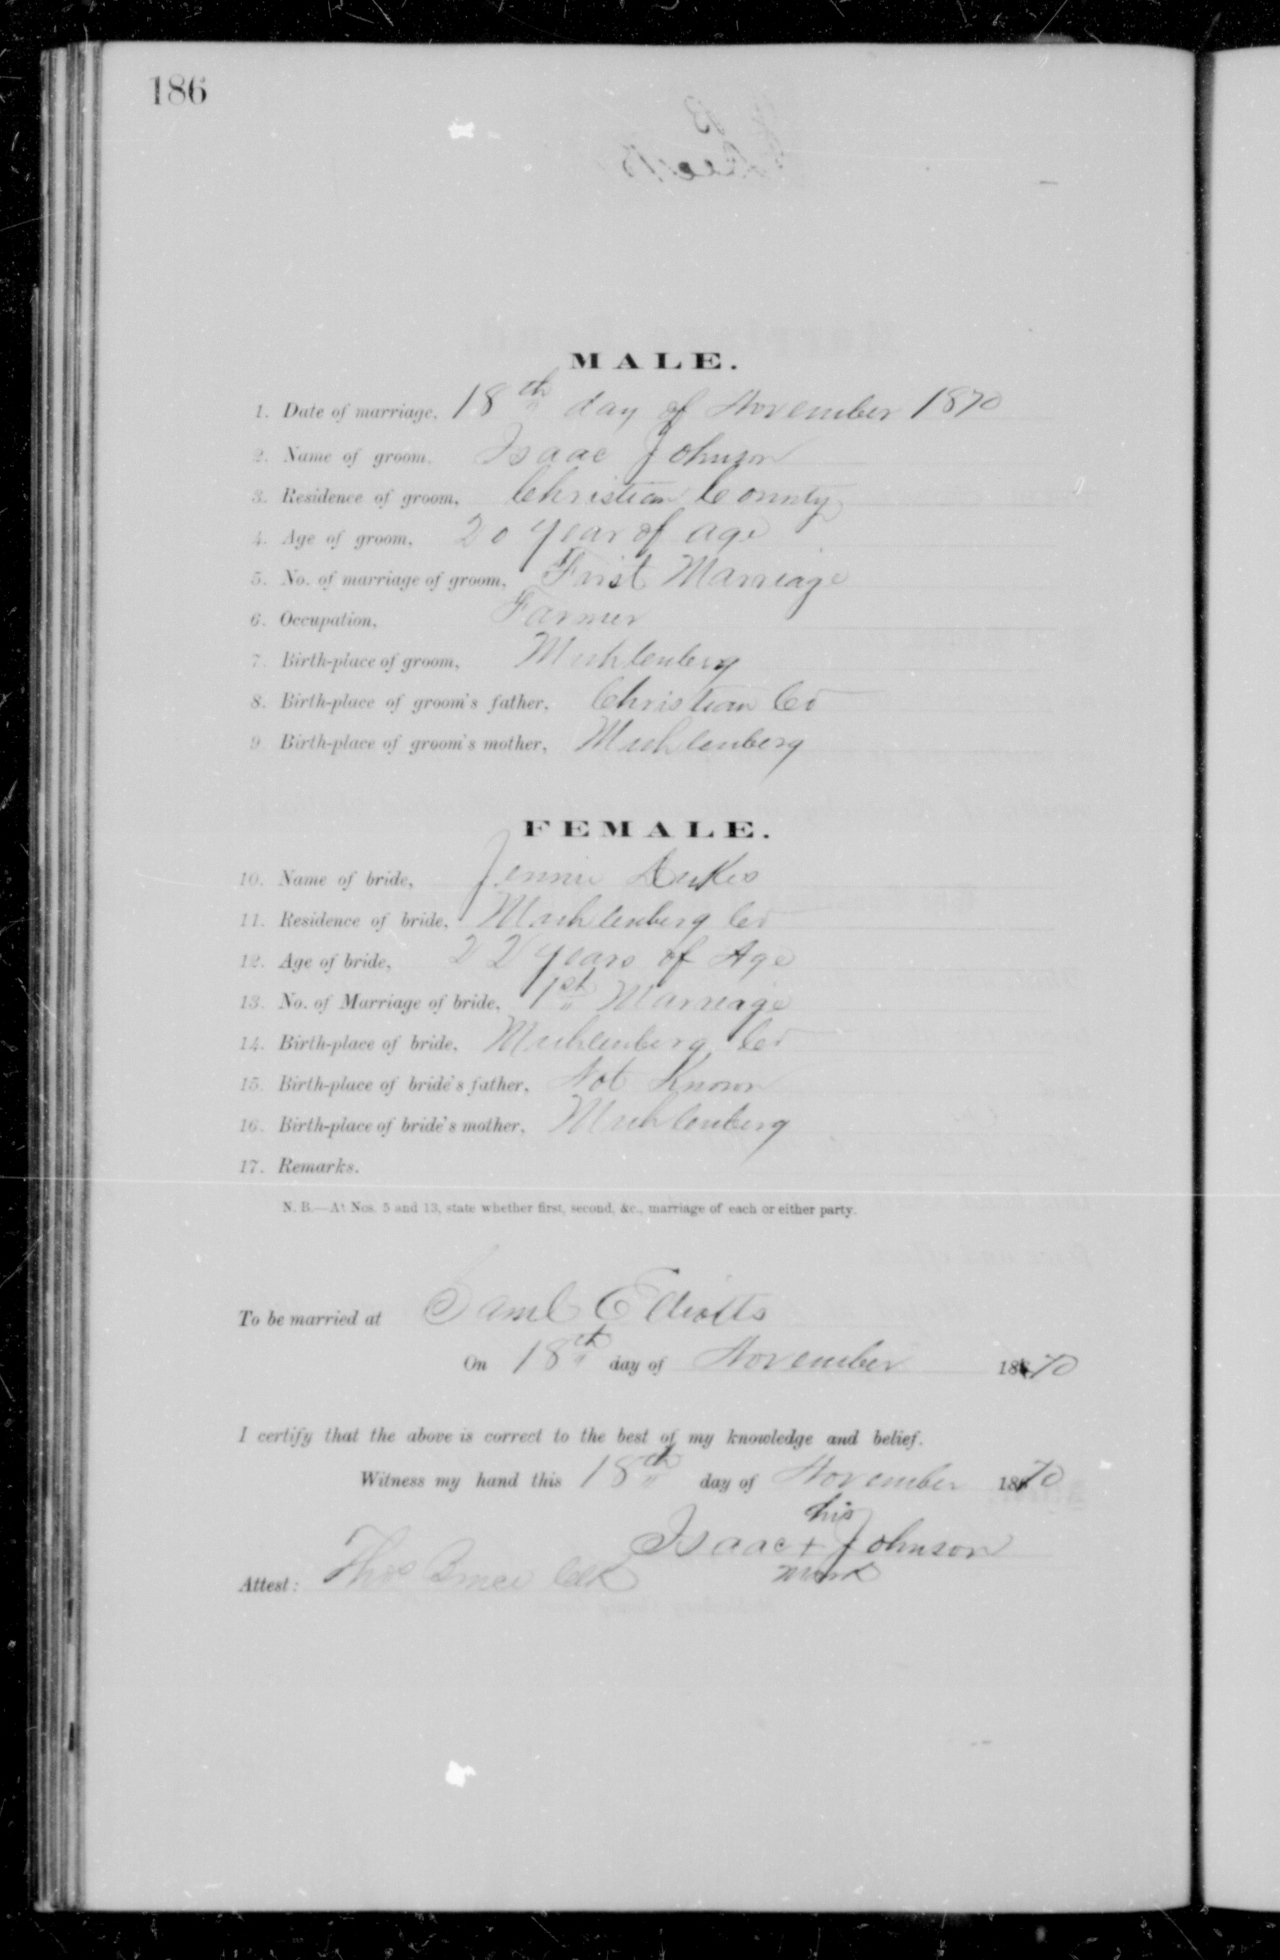 186
MALE.
1. Date of marriage, 18th day of November 1870
2. Name of groom, Isaac Johnson
3. Residence of groom, Christian County
4. Age of groom, 20 year of age
5. No. of marriage of groom, First Marriage
6. Occupation, Farmer
7. Birth-place of groom, Muhlenberg
8. Birth-place of groom's father, Christian Co
9. Birth-place of groom's mother, Muhlenberg
FEMALE.
10. Name of bride, Jennie Dukes
11. Residence of bride, Muhlenberg Co
12. Age of bride, 22 years of Age
13. No. of Marriage of bride, 1st Marriage
14. Birth-place of bride, Muhlenberg Co
15. Birth-place of bride's father, Not Known
16. Birth-place of bride's mother, Muhlenberg
17. Remarks.
N. B.—At Nos. 5 and 13, state whether first, second, &c., marriage of each or either party.
To be married at Saml Elliotts
On 18th day of November 1870
I certify that the above is correct to the best of my knowledge and belief.
Witness my hand this 18th day of November 1870
his
Isaac + Johnson
mark
Attest: Thos Bruce Clk